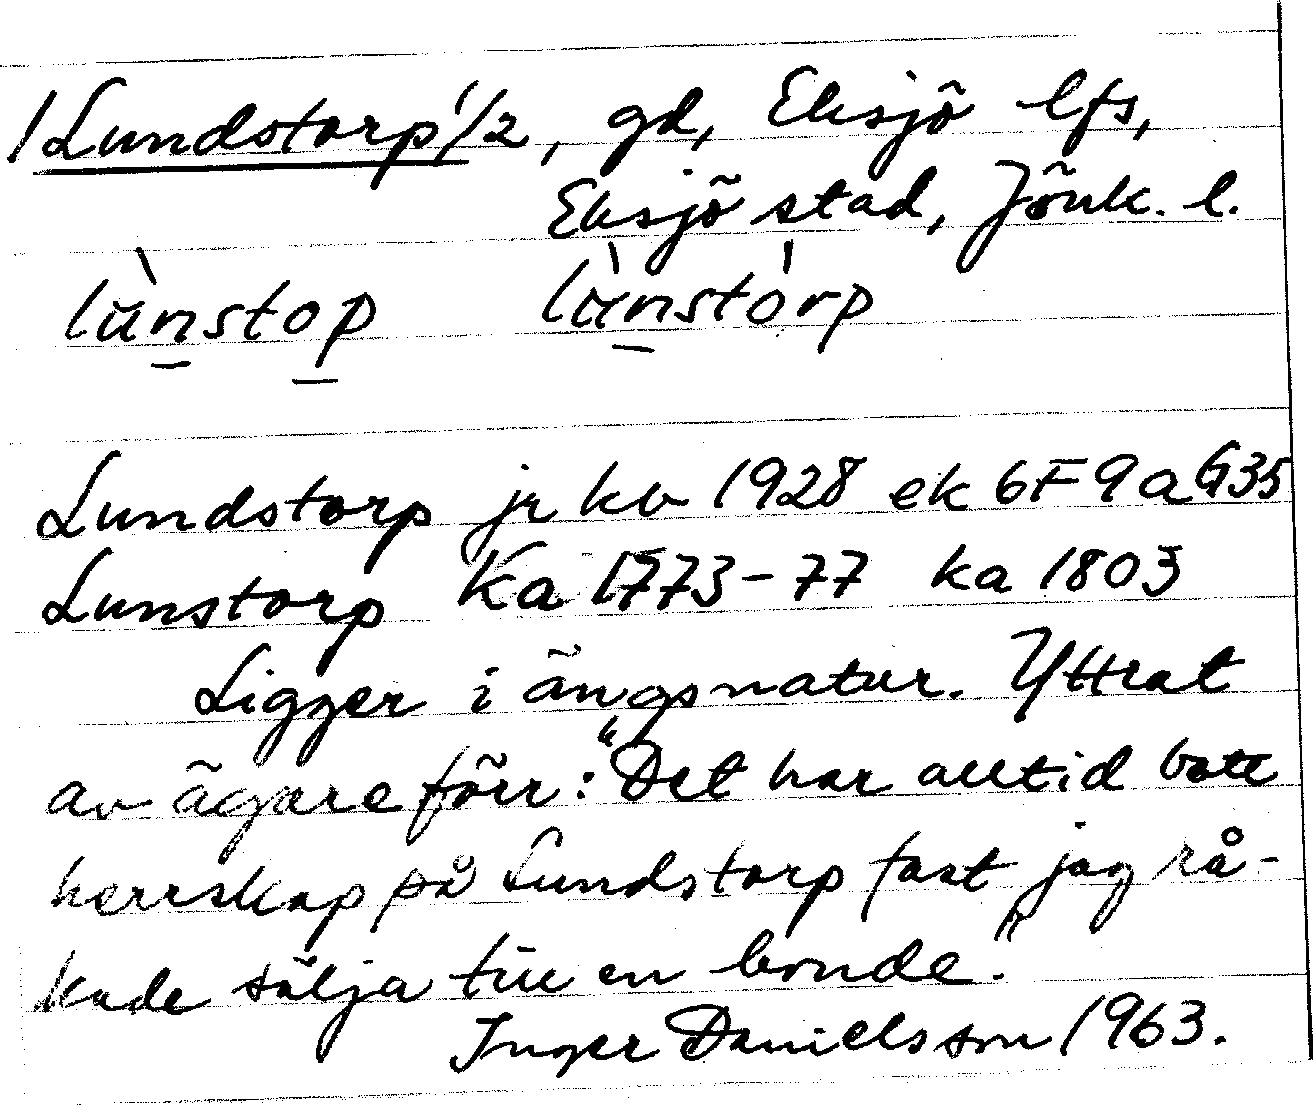 /Lundstorp 1/2, gd, Eksjö lfs,
Eksjö stad, Jönk. l.
lùnstop lùnstòrp
Lundstorp jr kb 1928 ek 6F 9a G35
Lunstorp Ka 1773-77 ka 1803
Ligger i ängsnatur. Yttrat
av ägare förr: "Det har alltid bott
herrskap på Lundstorp fast jag rå-
kade sälja till en bonde."
Inger Danielsson 1963.